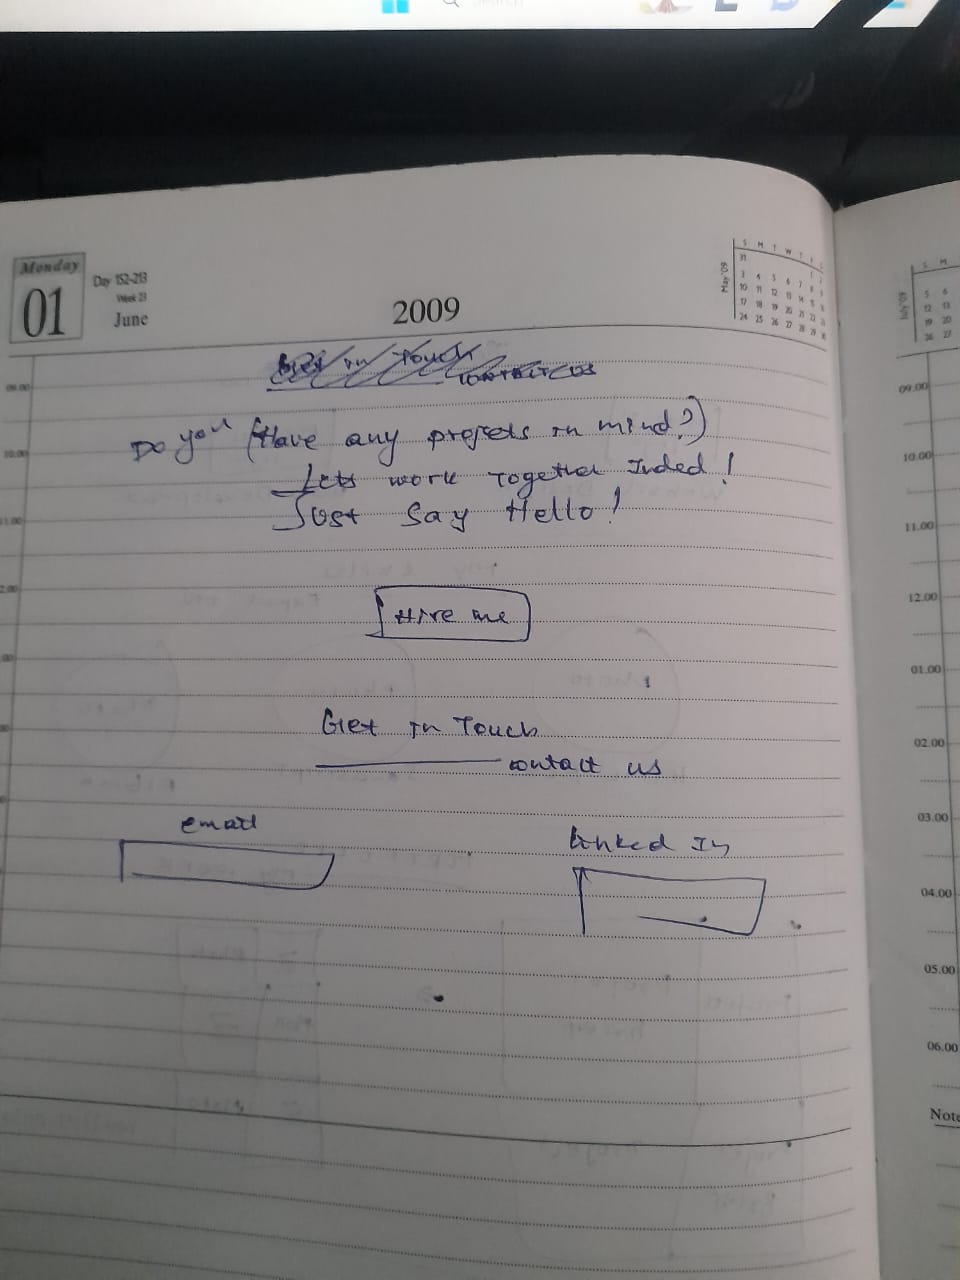 Monday
01
Day 152-213
Week 23
June
2009
May '09
S M T W T F S
31
3 4 5 6 7 8 9
10 11 12 13 14 15 16
17 18 19 20 21 22 23
24 25 26 27 28 29 30
Get in Touch
CONTACT US
Do you (Have any projets in mind?)
Lets work together Inded!
Just Say Hello!
Hire me
Get in Touch
contact us
email
Linked In
09.00
10.00
11.00
July '09
S M
5 6
12 13
19 20
26 27
09.00
10.00
11.00
12.00
01.00
02.00
03.00
04.00
05.00
06.00
Note